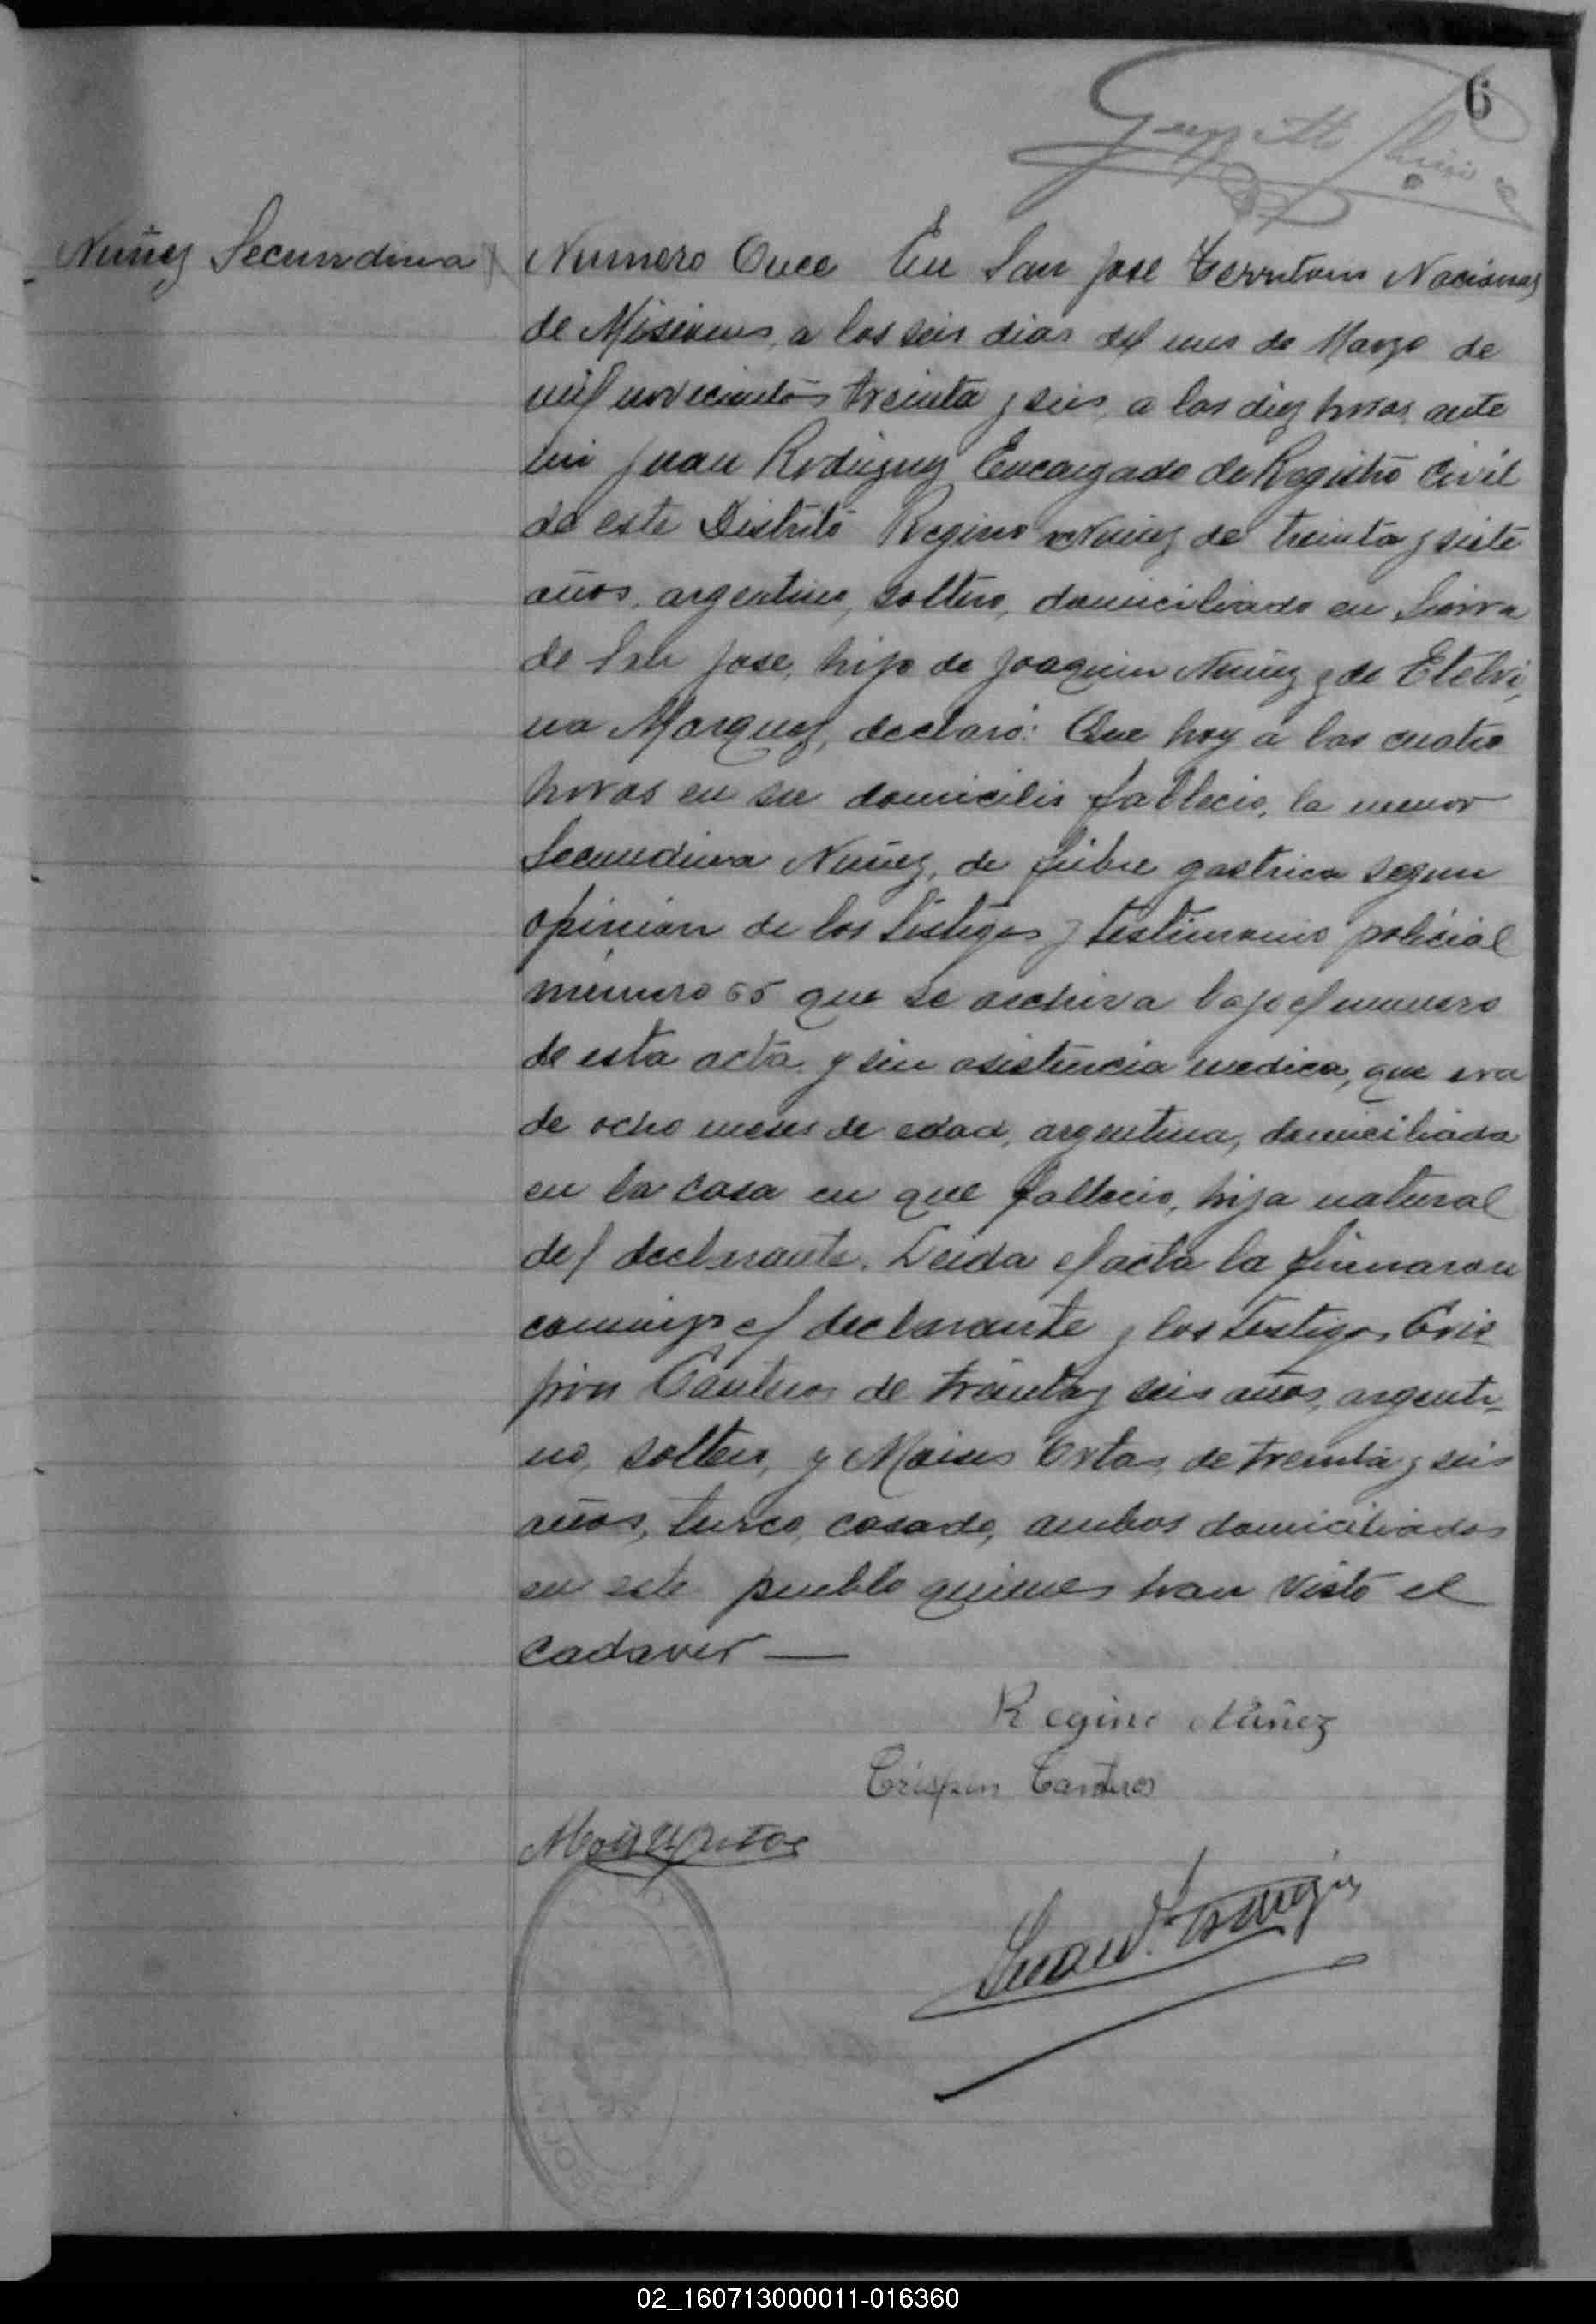 6
Nuñez Secundina
Numero Once En San Jose Territorio Nacional
de Misiones, a los seis dias del mes de Marzo de
mil novecientos treinta y seis, a las diez horas, ante
mi Juan Rodriguez Encargado de Registro Civil
de este Distrito Regino Nuñez de treinta y siete
años, argentino, soltero, domiciliado en Sierra
de San Jose, hijo de Joaquin Nuñez y de Etelvi,
na Marquez, declaró: Que hoy a las cuatro
horas en su domicilio fallecio, la menor
Secundina Nuñez, de fiebre gastrica segun
opinion de los testigos y testimonio policial
número 65 que se archiva bajo el numero
de esta acta y sin asistencia medica, que era
de ocho meses de edad, argentina, domiciliada
en la casa en que fallecio, hija natural
del declarante. Leida el acta la firmaron
conmigo el declarante y los testigos Cris-
pin Canteros de treinta y seis años, argenti-
no, soltero, y Moises Ortas, de treinta y seis
años, turco, casado, ambos domiciliados
en este pueblo quienes han visto el
cadaver —
Regino Núñez
Crispin Canteros
02_160713000011-016360